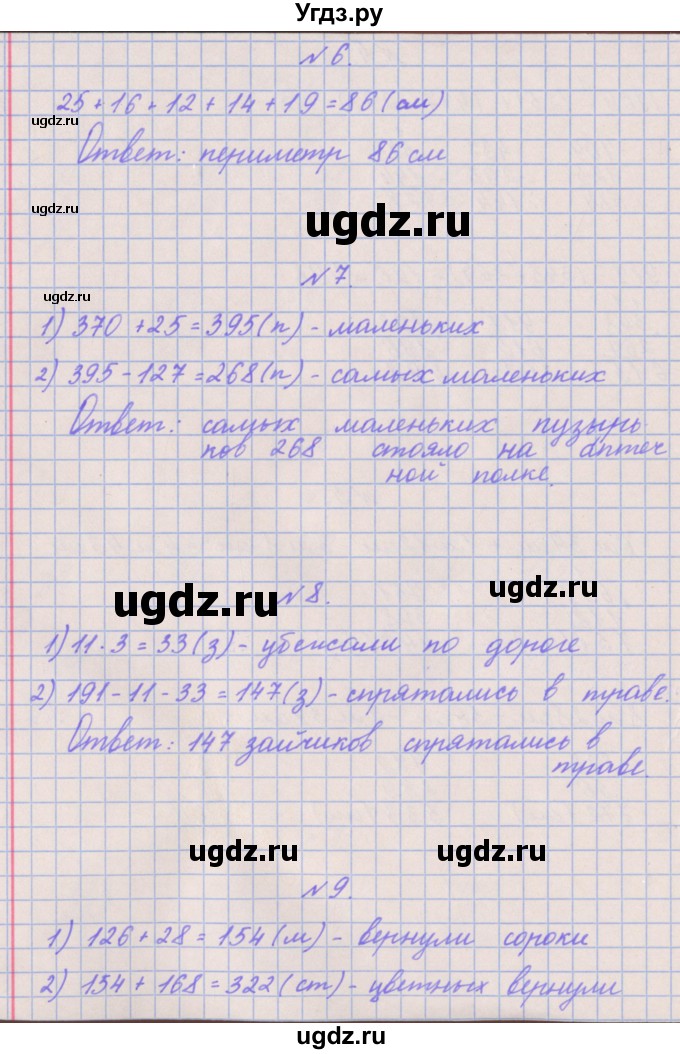 Угдз.ру
№ 6.
25 + 16 + 12 + 14 + 19 = 86 (см)
ugdz.ru
Ответ: периметр 86 см
ugdz.ru
ugdz.ru
№ 7.
ugdz.ru
1) 370 + 25 = 395 (п) - маленьких
2) 395 - 127 = 268 (п) - самых маленьких
Ответ: самых маленьких пузырь
ков 268 стояло на аптеч
ной полке.
ugdz.ru
ugdz.ru
№ 8.
1) 11 · 3 = 33 (з) - убежали по дороге
2) 191 - 11 - 33 = 147 (з) - спрятались в траве.
Ответ: 147 зайчиков спрятались в
траве.
ugdz.ru
ugdz.ru
№ 9.
1) 126 + 28 = 154 (м) - вернули сороки
2) 154 + 168 = 322 (ст) - цветных вернули
ugdz.ru